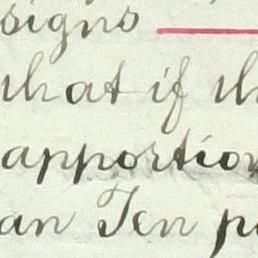 signs
that if th
apportion
an Ten p